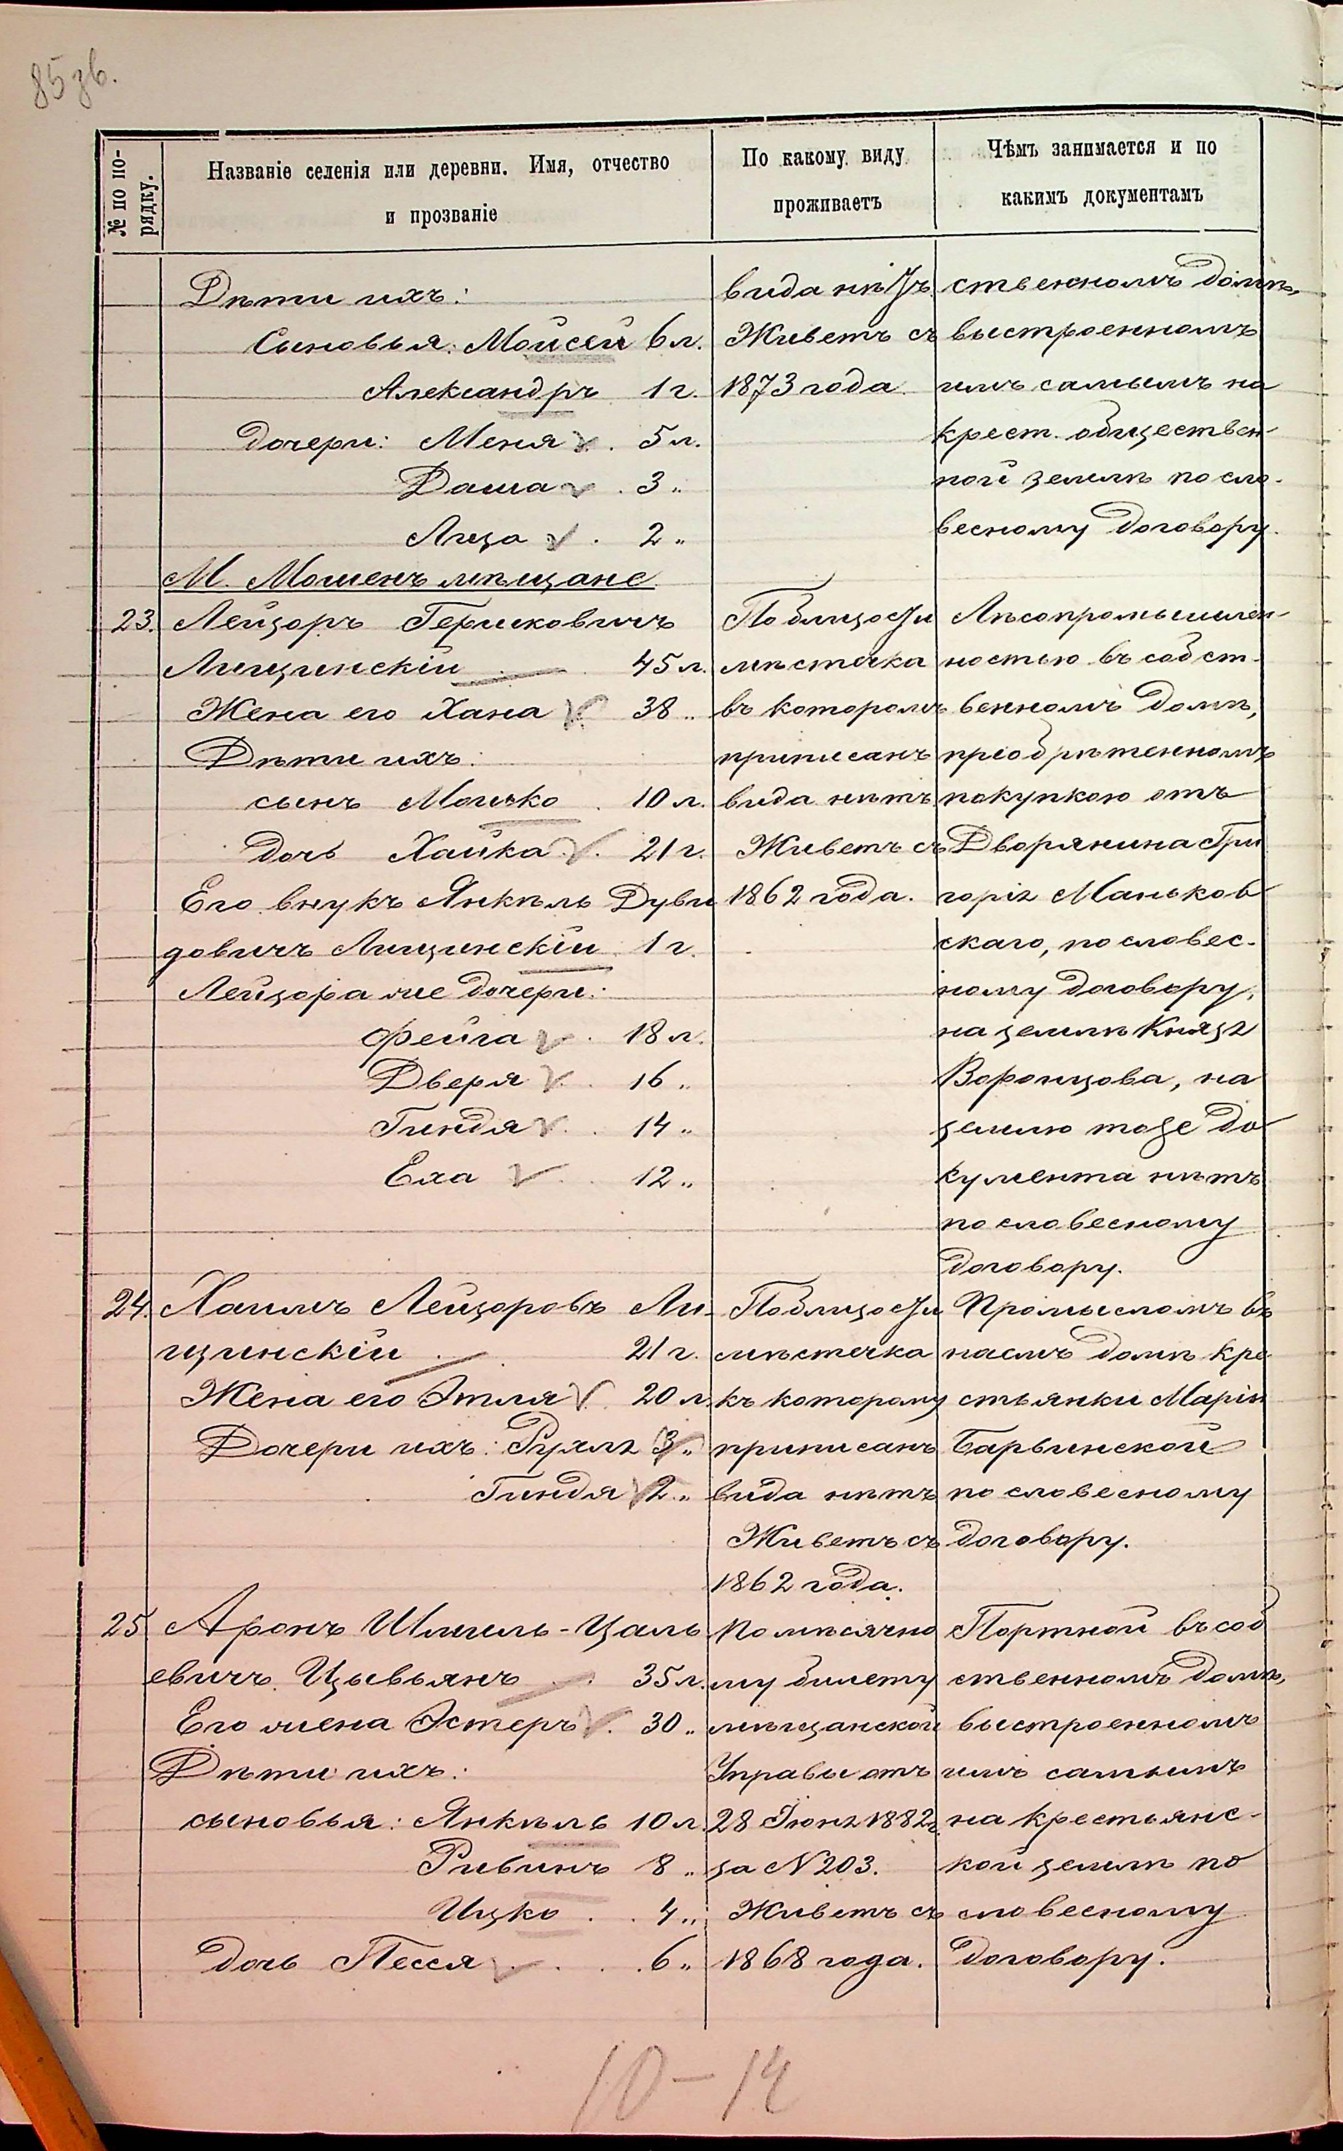 85 зв.
№ по по-
рядку.
Названіе селенія или деревни. Имя, отчество
и прозваніе
По какому виду
проживаетъ
Чѣмъ занимается и по
какимъ документамъ
Дѣти ихъ:
Сыновья: Мойсей 6 л.
Александръ 1 г.
Дочери: Меня 5 л.
Даша 3 "
Лиза 2 "
вида нѣтъ
Живетъ съ
1873 года
ственномъ домѣ,
выстроенномъ
имъ самымъ на
крест. обществен-
ной землѣ по сло-
весному договору.
М. Мошенъ мѣщане
23. Лейзоръ Гершковичъ
Лищинскій 45 л.
Жена его Хана 38 "
Дѣти ихъ:
сынъ Мошко 10 л.
дочь Хайка 21 г.
Его внукъ Янкель Дуви
довичъ Лищинскій 1 г.
Лейзора же дочери:
Фейга 18 л.
Дверя 16 "
Гиндя 14 "
Еха 12 "
По близости
мѣстечка
въ которомъ
приписанъ
вида нѣтъ
Живетъ съ
1862 года.
Лѣсопромышлен-
ностью въ собст-
венномъ домѣ,
пріобрѣтенномъ
покупкою отъ
Дворянина Гри
горія Маньков
скаго, по словес-
ному договору,
на землѣ Князя
Воронцова, на
землю тоже до
кумента нѣтъ
по словесному
договору.
24. Хаимъ Лейзоровъ Ли-
щинскій 21 г.
Жена его Этля 20 л.
Дочери ихъ: Рухля 3 "
Гиндя 2 "
По близости
мѣстечка
къ которому
приписанъ
вида нѣтъ
Живетъ съ
1862 года.
Промысломъ въ
наемъ домѣ кре
стьянки Маріи
Барвинской
по словесному
договору.
25 Аронъ Шмиль-Цаль
евичъ Цывьянъ 35 л.
Его жена Эстеръ 30 "
Дѣти ихъ:
сыновья: Янкель 10 л.
Ривинъ 8 "
Ицко 4 "
дочь Песся 6 "
По мѣсячно
му билету
мѣщанской
Управы отъ
28 Іюня 1882 г.
за N 203.
Живетъ съ
1868 года.
Портной въ соб
ственномъ домѣ,
выстроенномъ
имъ самымъ
на крестьянс-
кой землѣ по
словесному
договору.
10 - 14